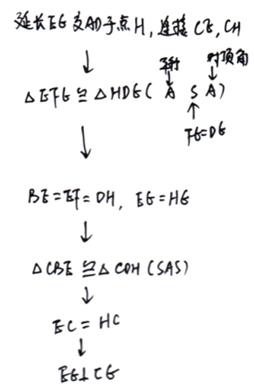 延长EG交AD于点H,连接CE,CH
↓ 平行 对顶角
△EFG≌△HDG(A S A)
FG=DG
↓
BE=EF=DH, EG=HG
↓
△CBE≌△CDH(SAS)
↓
EC=HC
↓
EG⊥CG